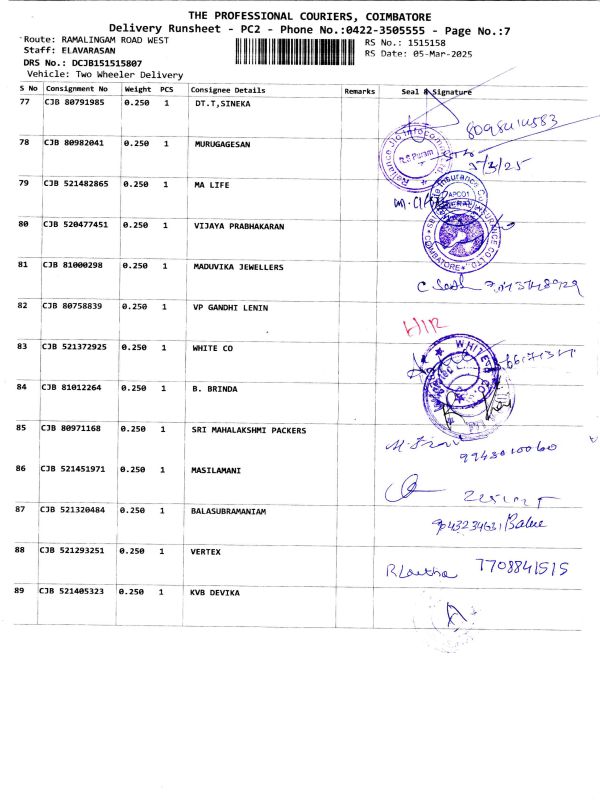 THE PROFESSIONAL COURIERS, COIMBATORE
Delivery Runsheet - PC2 - Phone No.:0422-3505555 - Page No.:7
Route: RAMALINGAM ROAD WEST
RS No.: 1515158
Staff: ELAVARASAN
RS Date: 05-Mar-2025
DRS No.: DCJB151515807
Vehicle: Two Wheeler Delivery
S No Consignment No Weight PCS Consignee Details Remarks Seal & Signature
77 CJB 80791985 0.250 1 DT.T,SINEKA
78 CJB 80982041 0.250 1 MURUGAGESAN
5/3/25
79 CJB 521482865 0.250 1 MA LIFE
80 CJB 520477451 0.250 1 VIJAYA PRABHAKARAN
81 CJB 81000298 0.250 1 MADUVIKA JEWELLERS
82 CJB 80758839 0.250 1 VP GANDHI LENIN
83 CJB 521372925 0.250 1 WHITE CO
84 CJB 81012264 0.250 1 B. BRINDA
85 CJB 80971168 0.250 1 SRI MAHALAKSHMI PACKERS
9948010060
86 CJB 521451971 0.250 1 MASILAMANI
87 CJB 521320484 0.250 1 BALASUBRAMANIAM
9043234631 Balu
88 CJB 521293251 0.250 1 VERTEX
R Laetha 7708841515
89 CJB 521405323 0.250 1 KVB DEVIKA